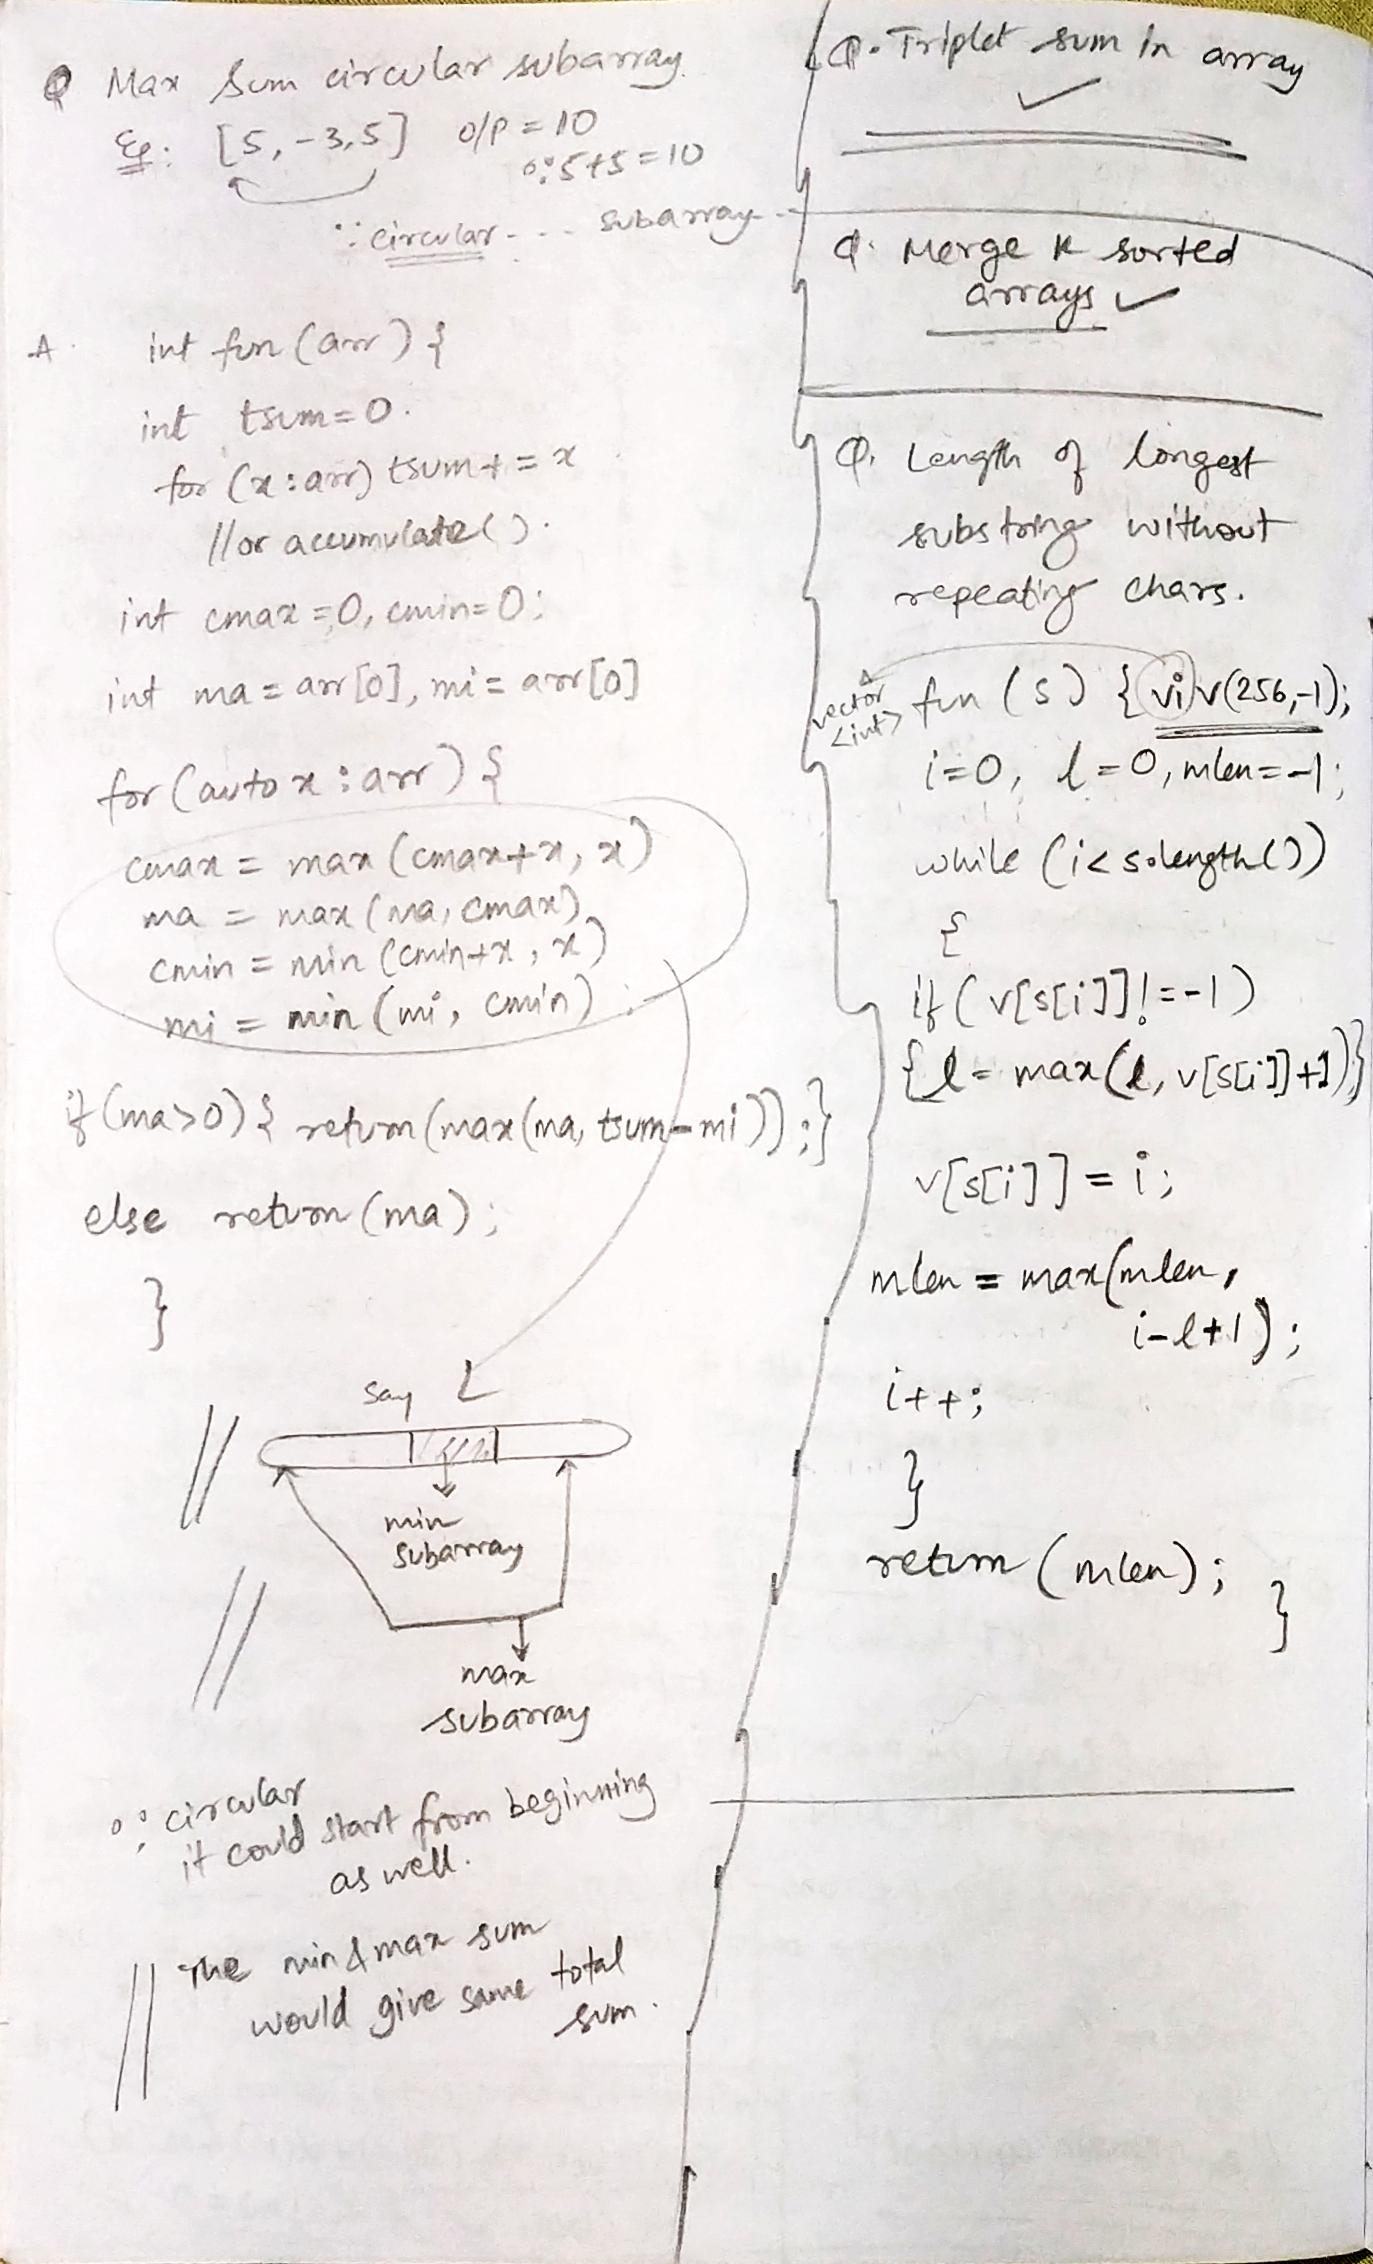 Q Max Sum circular subarray.
Eg: [5, -3, 5] o/p = 10
∵ 5+5=10
∵ circular - - - subarray
A. int fun (arr) {
int tsum=0.
for (x : arr) tsum += x
// or accumulate().
int cmax = 0, cmin=0;
int ma = arr[0], mi = arr[0]
for (auto x : arr) {
cmax = max (cmax+x, x)
ma = max (ma, cmax)
cmin = min (cmin+x, x)
mi = min (mi, cmin) ;
if (ma>0) { return (max(ma, tsum-mi)) ; }
else return (ma) ;
}
say
//
min
subarray
//
max
subarray
∵ circular
it could start from beginning
as well.
// The min & max sum
would give same total
sum.
Q. Triplet sum in array
Q. Merge K sorted
arrays
Q. Length of longest
substring without
repeating chars.
vector
<int>
fun (s) { vi v(256,-1);
i=0, l=0, mlen=-1;
while (i< s.length())
{
if ( v[s[i]] != -1 )
{ l = max(l, v[s[i]]+1) }
v[s[i]] = i ;
mlen = max(mlen,
i-l+1) ;
i++;
}
return (mlen) ;
}